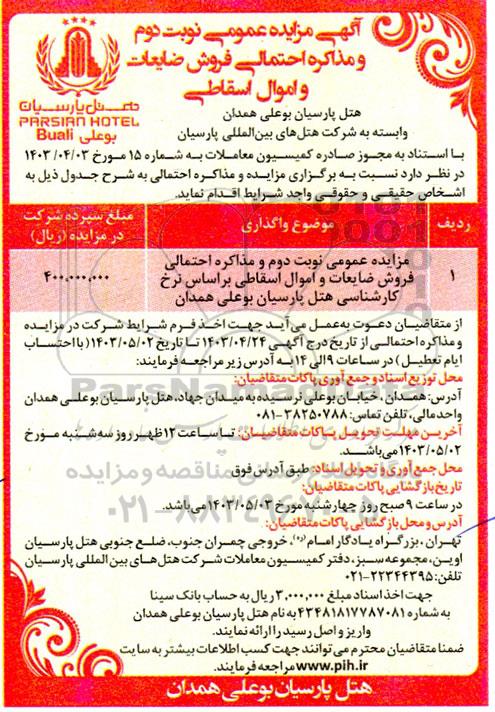 آگهی مزایده عمومی نوبت دوم
و مذاکره احتمالی فروش ضایعات
و اموال اسقاطی
هتل پارسیان
PARSIAN HOTEL
بوعلی Buali
هتل پارسیان بوعلی همدان
وابسته به شرکت هتل‌های بین‌المللی پارسیان
با استناد به مجوز صادره کمیسیون معاملات به شماره ۱۵ مورخ ۱۴۰۳/۰۴/۰۳
در نظر دارد نسبت به برگزاری مزایده و مذاکره احتمالی به شرح جدول ذیل به
اشخاص حقیقی و حقوقی واجد شرایط اقدام نماید.
ردیف موضوع واگذاری مبلغ سپرده شرکت در مزایده (ریال)
۱ مزایده عمومی نوبت دوم و مذاکره احتمالی
فروش ضایعات و اموال اسقاطی براساس نرخ
کارشناسی هتل پارسیان بوعلی همدان
۴۰۰,۰۰۰,۰۰۰
از متقاضیان دعوت به‌عمل می‌آید جهت اخذ فرم شرایط شرکت در مزایده
و مذاکره احتمالی از تاریخ درج آگهی ۱۴۰۳/۰۴/۲۴ تا تاریخ ۱۴۰۳/۰۵/۰۲ (با احتساب
ایام تعطیل) در ساعات ۹ الی ۱۴ به آدرس زیر مراجعه فرمایند:
محل توزیع اسناد و جمع آوری پاکات متقاضیان:
آدرس: همدان، خیابان بوعلی نرسیده به میدان جهاد، هتل پارسیان بوعلی همدان
واحد مالی، تلفن تماس: ۳۸۲۵۰۷۸۸-۰۸۱
آخرین مهلت تحویل پاکات متقاضیان: تا ساعت ۱۲ ظهر روز سه شنبه مورخ
۱۴۰۳/۰۵/۰۲ می‌باشد.
محل جمع آوری و تحویل اسناد: طبق آدرس فوق
تاریخ بازگشایی پاکات متقاضیان:
در ساعت ۹ صبح روز چهارشنبه مورخ ۱۴۰۳/۰۵/۰۳ می‌باشد.
آدرس و محل بازگشایی پاکات متقاضیان:
تهران، بزرگراه یادگار امام (ره)، خروجی چمران جنوب، ضلع جنوبی هتل پارسیان
اوین، مجموعه سبز، دفتر کمیسیون معاملات شرکت هتل های بین المللی پارسیان
تلفن: ۲۲۳۴۴۳۹۵-۰۲۱
جهت اخذ اسناد مبلغ ۳,۰۰۰,۰۰۰ ریال به حساب بانک سینا
به شماره ۴۳۴۸۱۸۱۷۷۸۷۰۸۱ به نام هتل پارسیان بوعلی همدان
واریز و اصل رسید را ارائه نمایند.
ضمنا متقاضیان محترم می‌توانند جهت کسب اطلاعات بیشتر به سایت
www.pih.ir مراجعه فرمایند.
هتل پارسیان بوعلی همدان